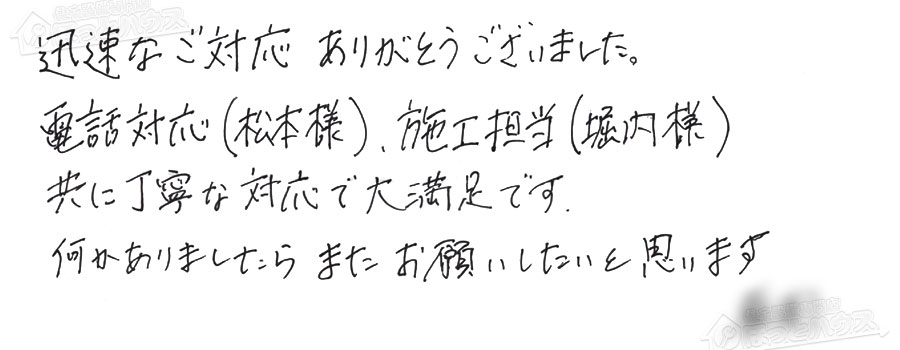 迅速なご対応 ありがとうございました。
電話対応(松本様)、施工担当(堀内様)
共に丁寧な対応で大満足です.
何かありましたら また お願いしたいと思います